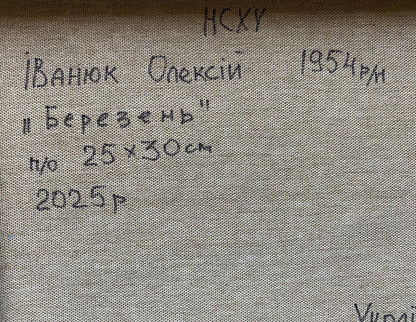 НСХУ
Іванюк Олексій 1954 р/н
„Березень"
п/о 25×30см
2025р